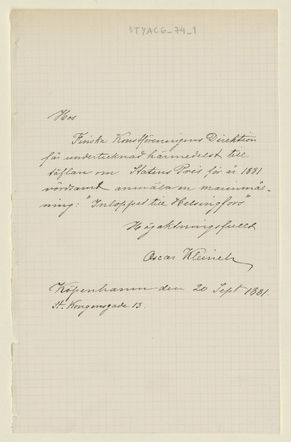 STYACG_74_1
Hos
Finska Konstföreningens Direktion
får undertecknad härmedelst till
täflan om Statens Pris för år 1881
vördsamt anmäla en marinmål-
ning: "Inloppet till Helsingfors
Högaktningsfullt
Oscar Kleineh
Köpenhamn den 20 Sept 1881.
St. Kongensgade 13.